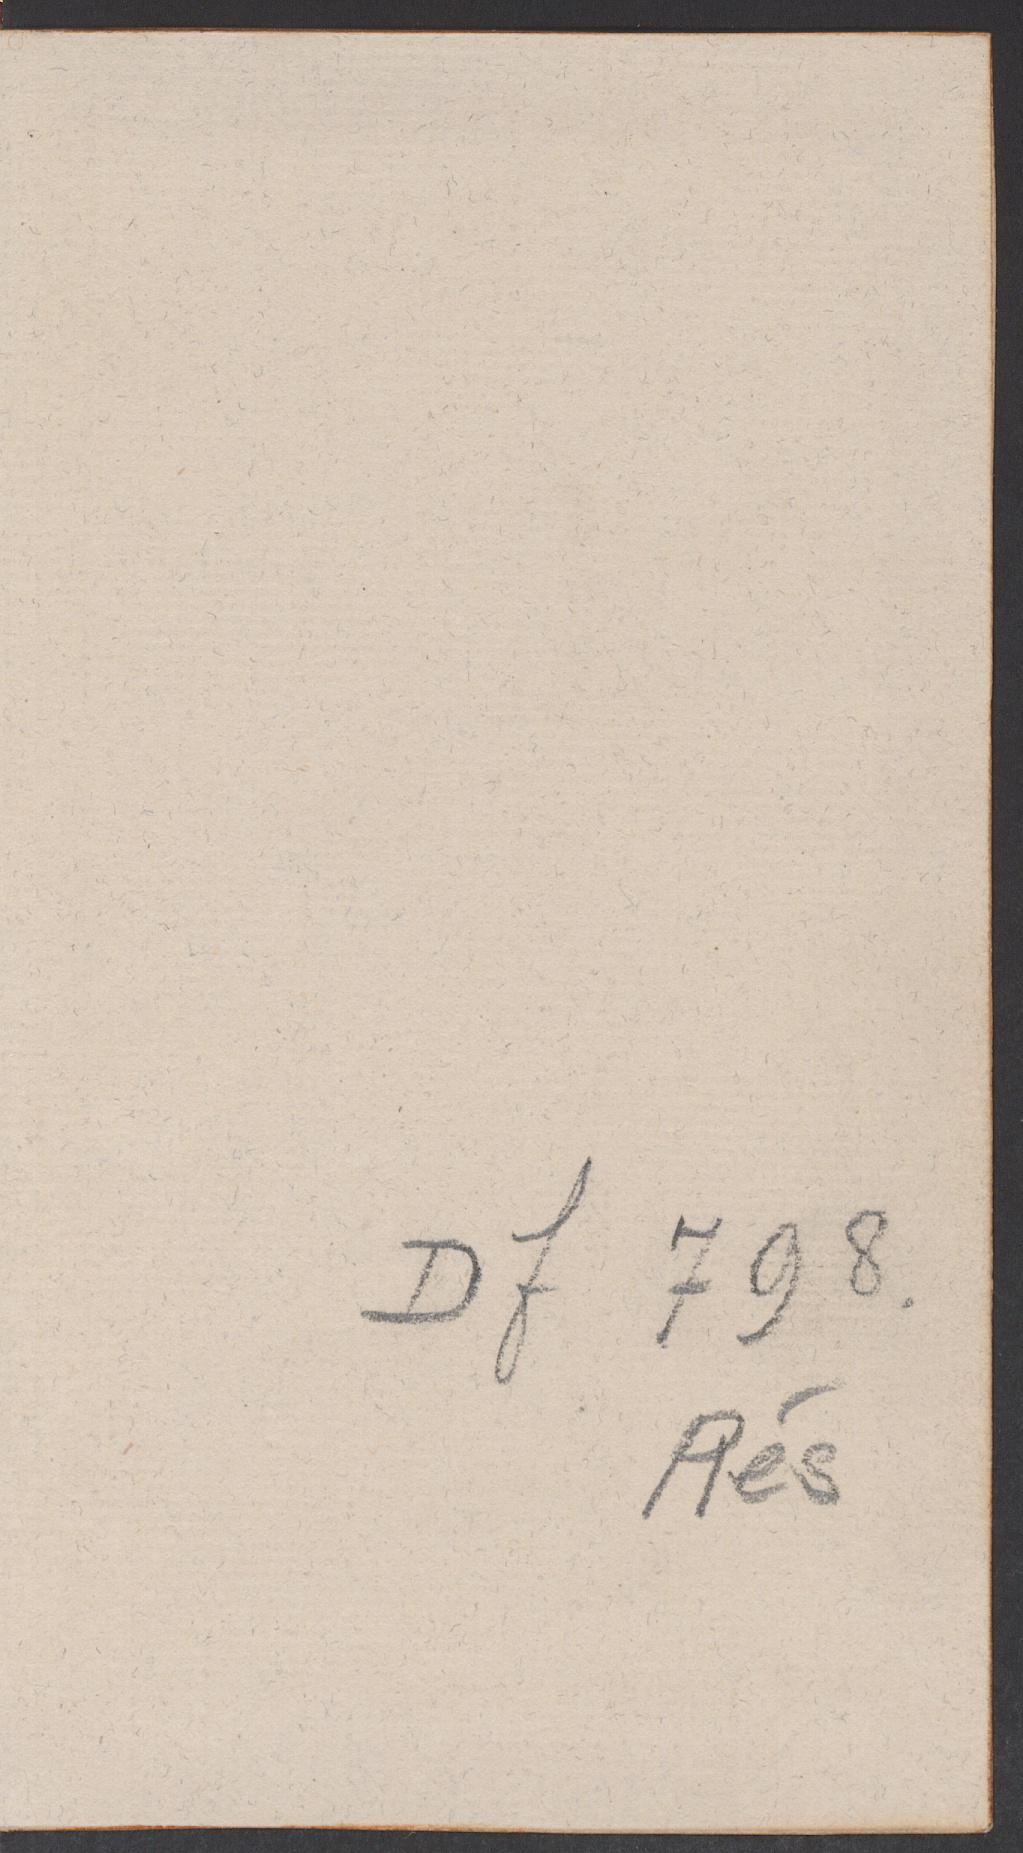 Df 798.
Rés